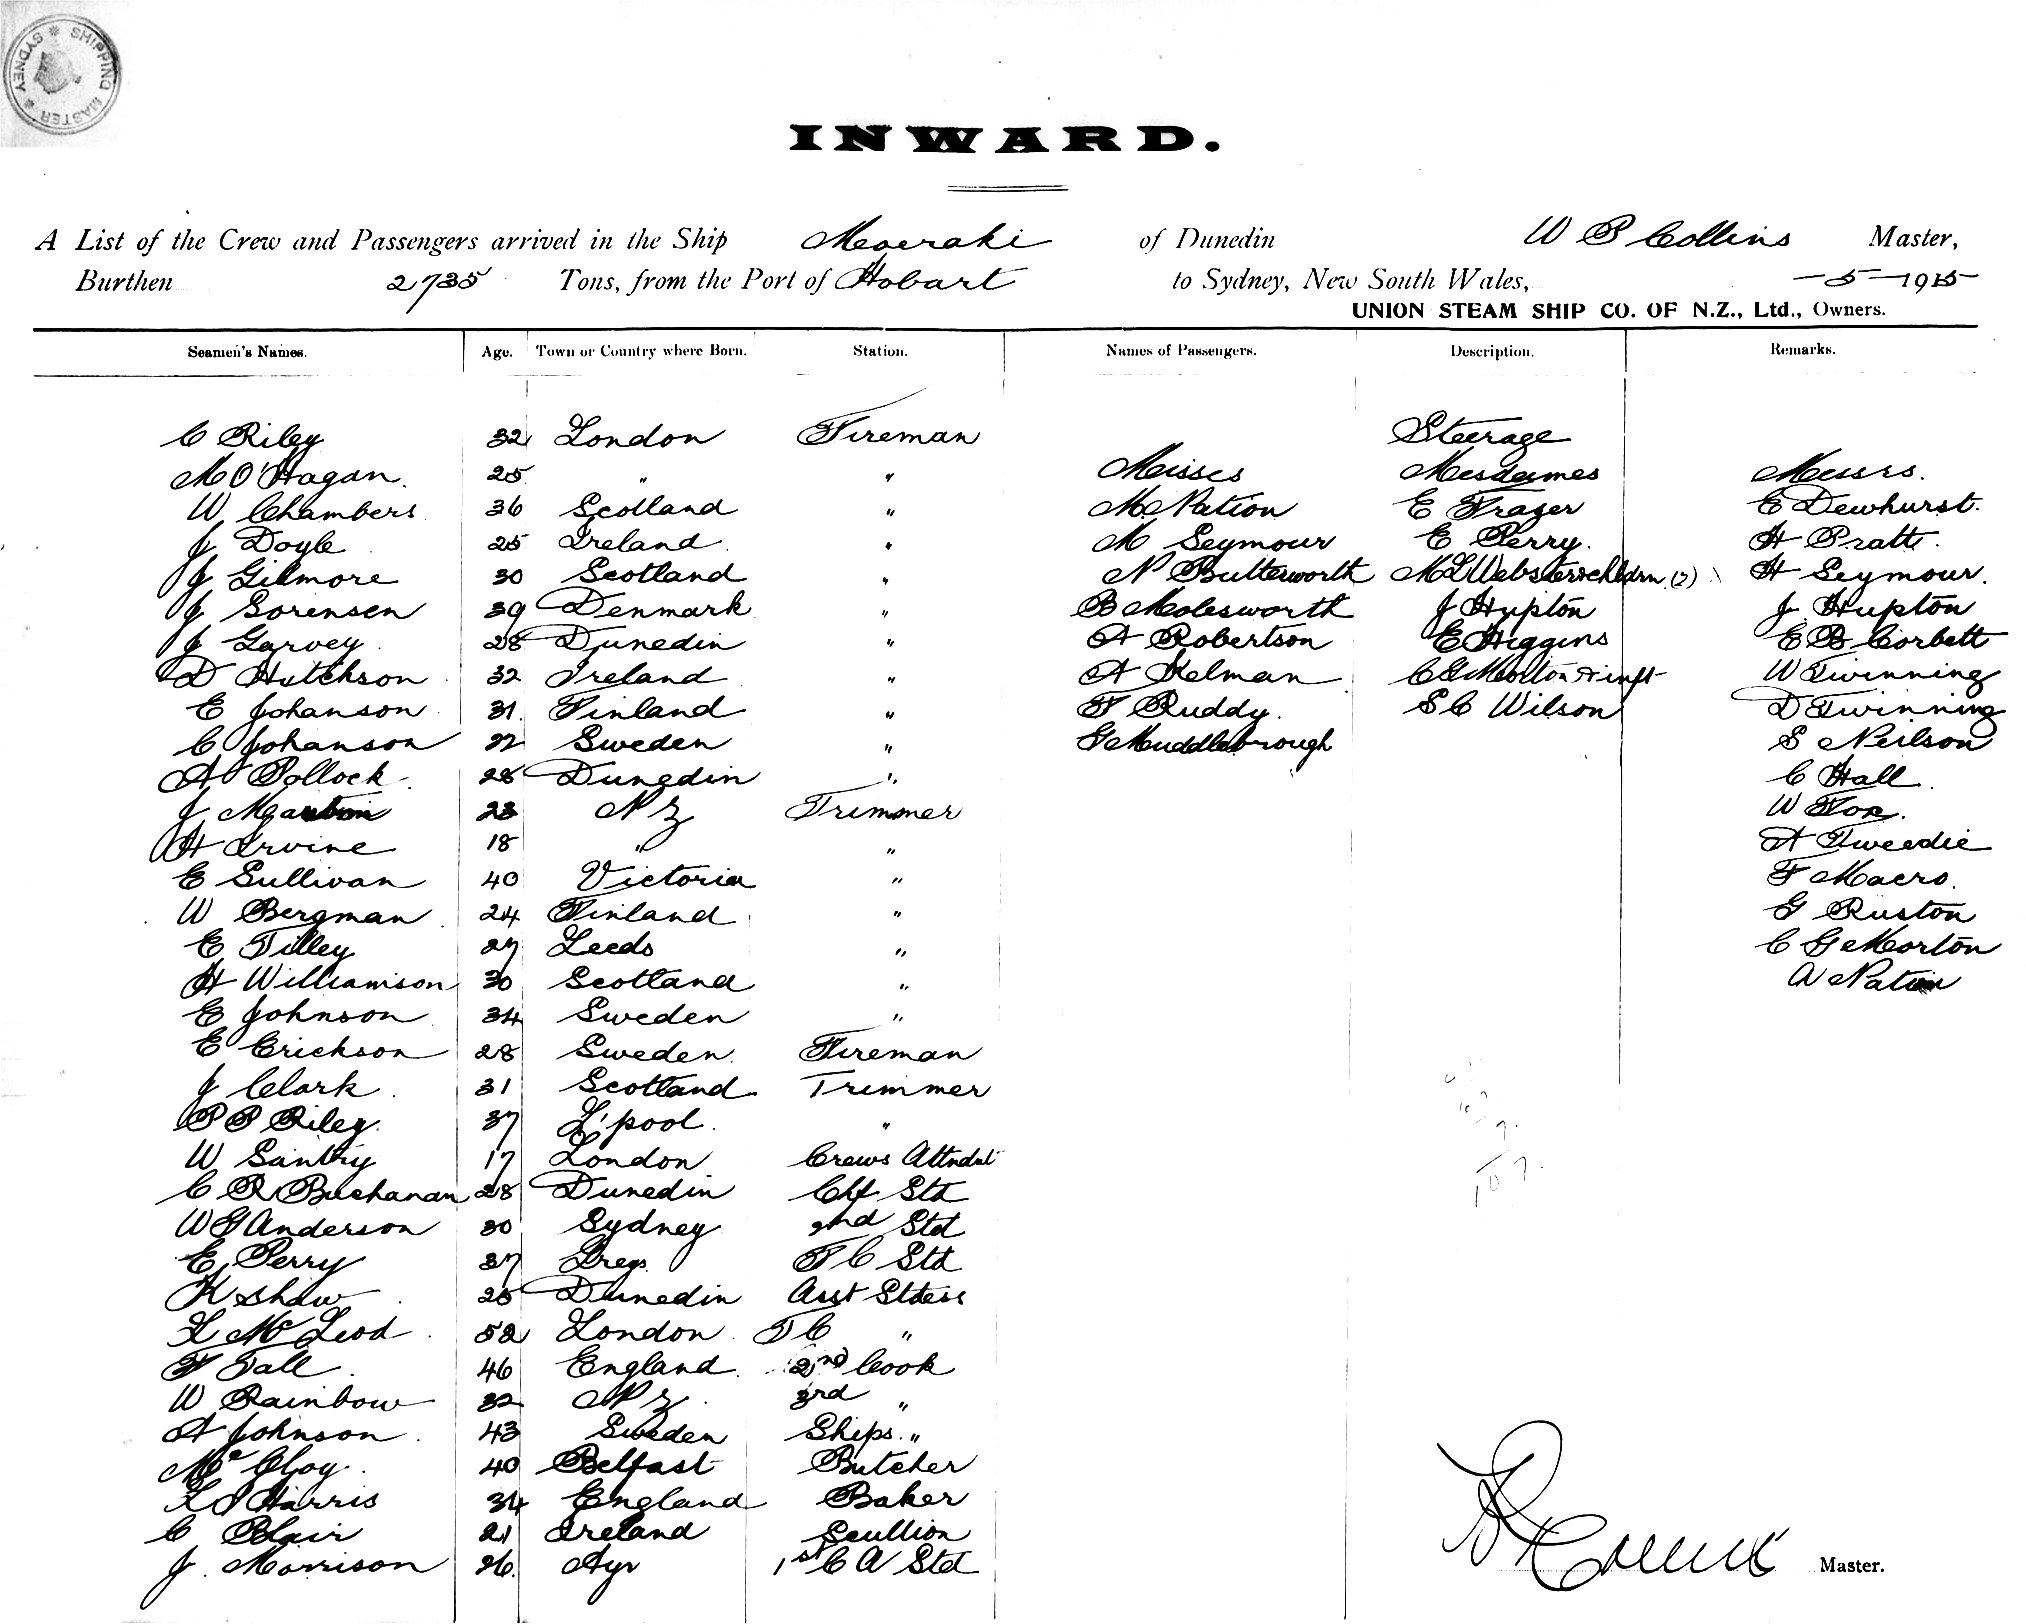 SHIPPING MASTER * SYDNEY *
INWARD.
A List of the Crew and Passengers arrived in the Ship Moeraki of Dunedin W P Collins Master,
Burthen 2735 Tons, from the Port of Hobart to Sydney, New South Wales, -5-1915
UNION STEAM SHIP CO. OF N.Z., Ltd., Owners.
Seamen's Names. Age. Town or Country where Born. Station. Names of Passengers. Description. Remarks.
C Riley 32 London Fireman Steerage
M O'Hagan 25 " " Misses Mesdames Messrs.
W Chambers 36 Scotland " M Nation E Frazer E Dewhurst.
J Doyle 25 Ireland " M Seymour E Perry. H Pratt.
J Gilmore 30 Scotland " N Butterworth M L Webster & childrn (2) H Seymour.
J Sorensen 39 Denmark " B Molesworth J Hupton J Hupton
J Garvey 28 Dunedin " A Robertson E Higgins E B Corbett
D Hutchson 32 Ireland " A Kelman C G Morton & inft W Twinning
E Johanson 31 Finland " F Ruddy. S C Wilson D Twinning
C Johanson 22 Sweden " G Muddlebrough S Neilson
A Pollock 28 Dunedin " C Hall
J 23 N Z Trimmer W Fox.
H Irvine 18 " " A Tweedie
E Sullivan 40 Victoria " F Macro.
W Bergman 24 Finland " G Ruston
E Tilley 27 Leeds " C G Morton
H Williamson 30 Scotland " A Nation
E Johnson 34 Sweden "
E Erickson 28 Sweden. Fireman
J Clark 31 Scotland Trimmer
P P Riley 37 L'pool. "
W Santry 17 London Crews Attndnt
C R Buchanan 28 Dunedin Chf Std
W G Anderson 30 Sydney 2nd Std
E Perry 37 F C Std
K Shaw 25 Dunedin Asst Stdess
L McLeod 52 London F C "
F Tall 46 England 2nd Cook
W Rainbow 32 N Z 3rd "
A Johnson 43 Sweden Ships "
McCloy 40 Belfast Butcher
L J Harris 34 England Baker
C Blair 21 Ireland Scullion
J Morrison 26. Ayr 1st C A Std
Master.